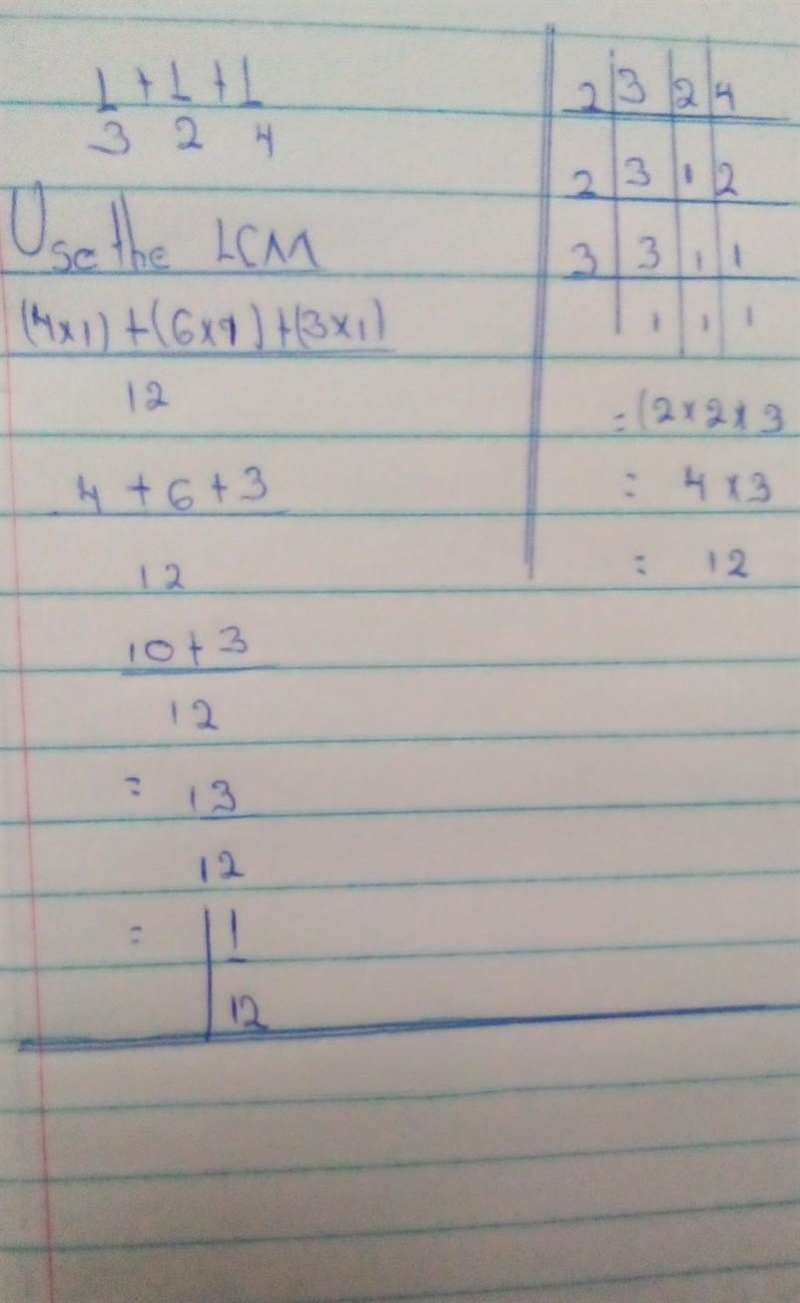 1 + 1 + 1
3 2 4
Use the LCM
(4x1) + (6x1) + (3x1)
12
4 + 6 + 3
12
10 + 3
12
= 13
12
= 1 1
12
2 3 2 4
2 3 1 2
3 3 1 1
1 1 1
= (2x2x3
= 4 x 3
= 12